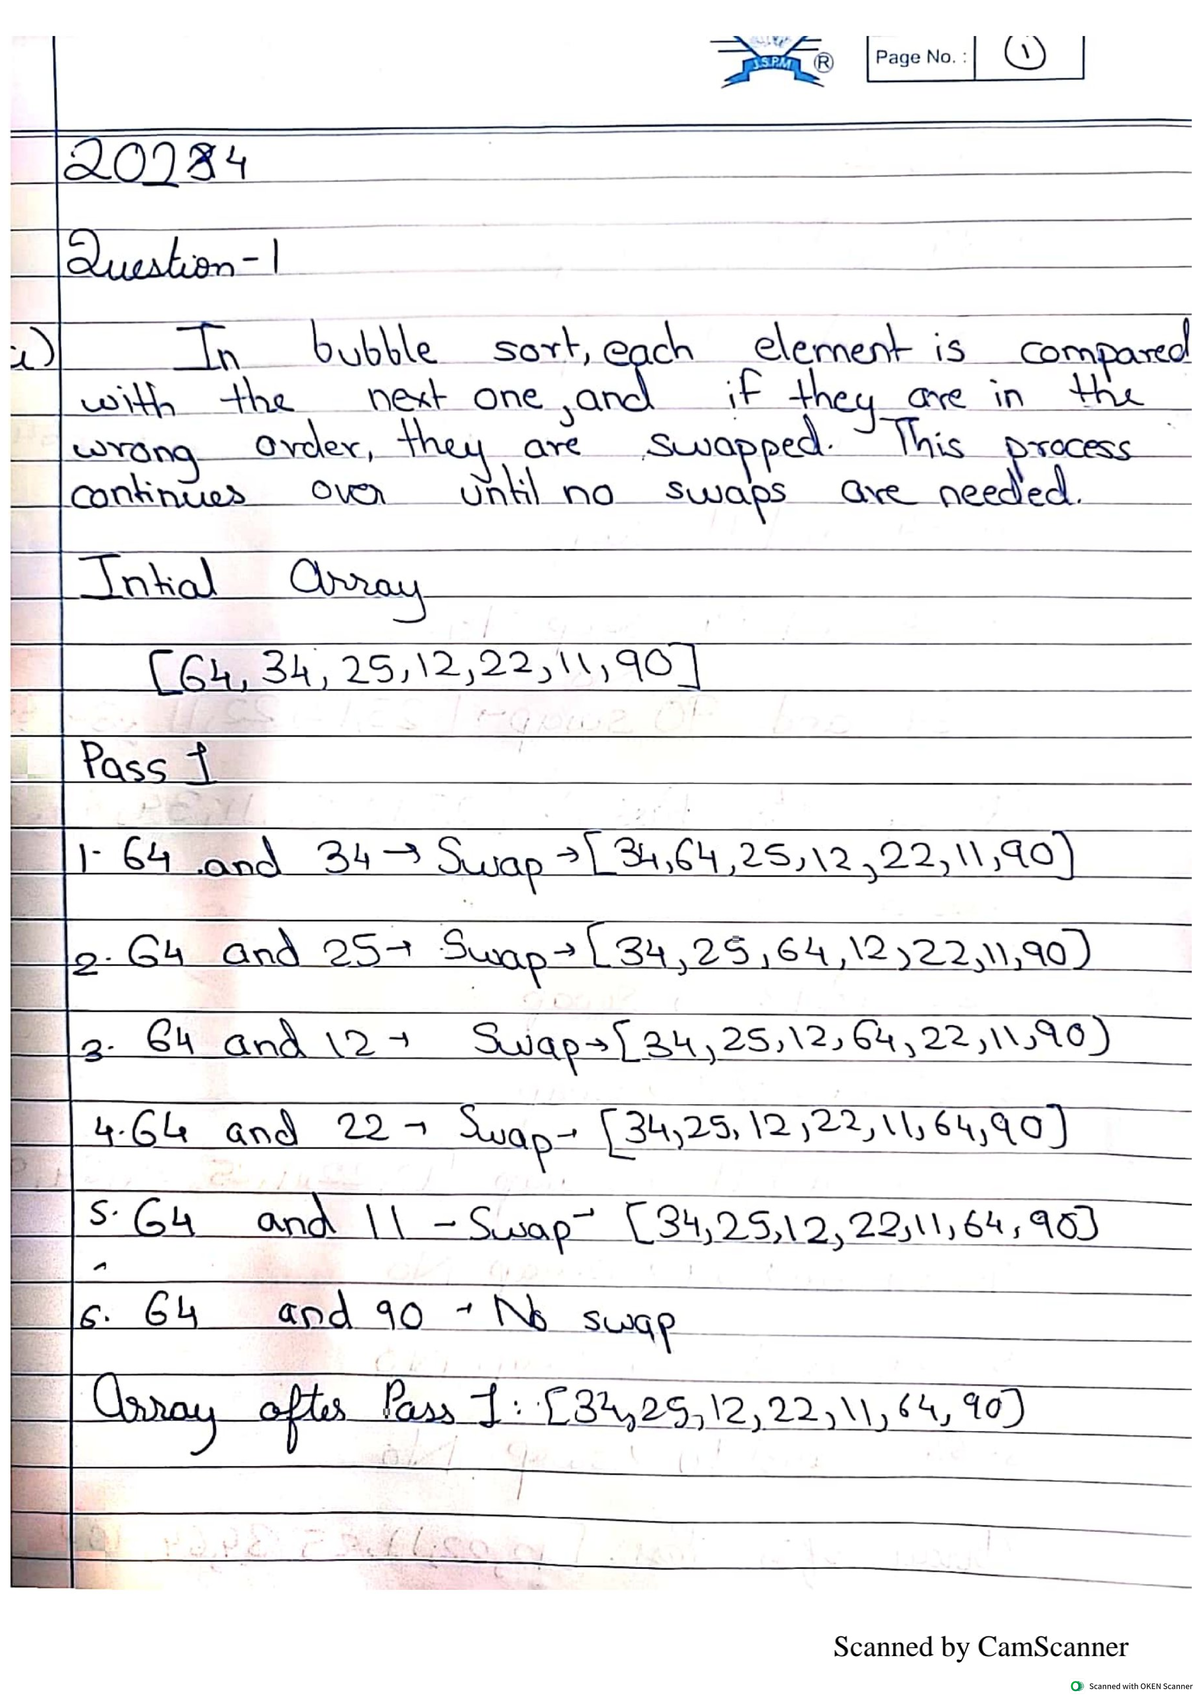 J.S.P.M ®
Page No. : 1
20284
Question-1
i) In bubble sort, each element is compared
with the next one, and if they are in the
wrong order, they are swapped. This process
continues over until no swaps are needed.
Intial Array
[64, 34, 25, 12, 22, 11, 90]
Pass 1
1- 64 and 34 → Swap → [34, 64, 25, 12, 22, 11, 90]
2. 64 and 25 → Swap → [34, 25, 64, 12, 22, 11, 90]
3. 64 and 12 → Swap → [34, 25, 12, 64, 22, 11, 90]
4. 64 and 22 → Swap → [34, 25, 12, 22, 11, 64, 90]
5. 64 and 11 - Swap → [34, 25, 12, 22, 11, 64, 90]
6. 64 and 90 → No swap
Array after Pass 1: [34, 25, 12, 22, 11, 64, 90]
Scanned by CamScanner
Scanned with OKEN Scanner